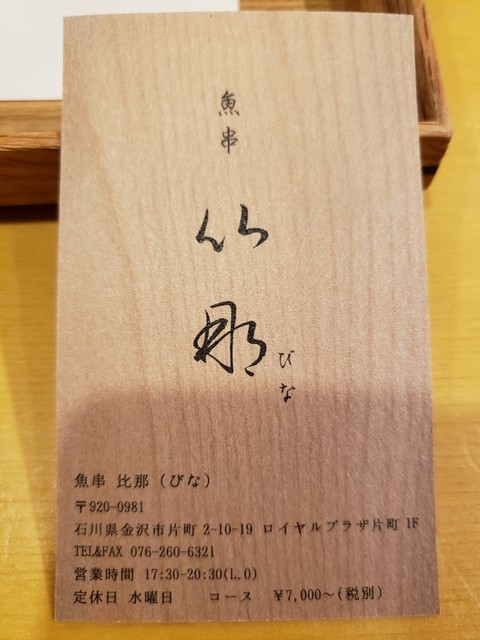 魚串
比那
びな
魚串 比那 (びな)
〒920-0981
石川県金沢市片町 2-10-19 ロイヤルプラザ片町 1F
TEL&FAX 076-260-6321
営業時間 17:30-20:30(L.O)
定休日 水曜日 コース ¥7,000～(税別)